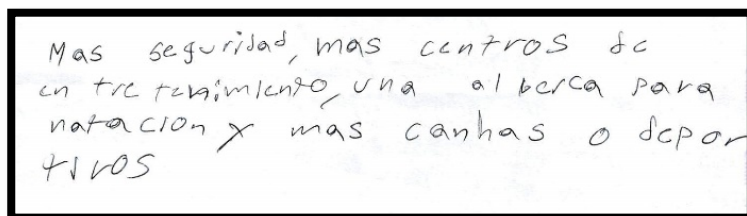 Mas seguridad, mas centros de
entretenimiento, una alberca para
natacion y mas canhas o depor
tivos